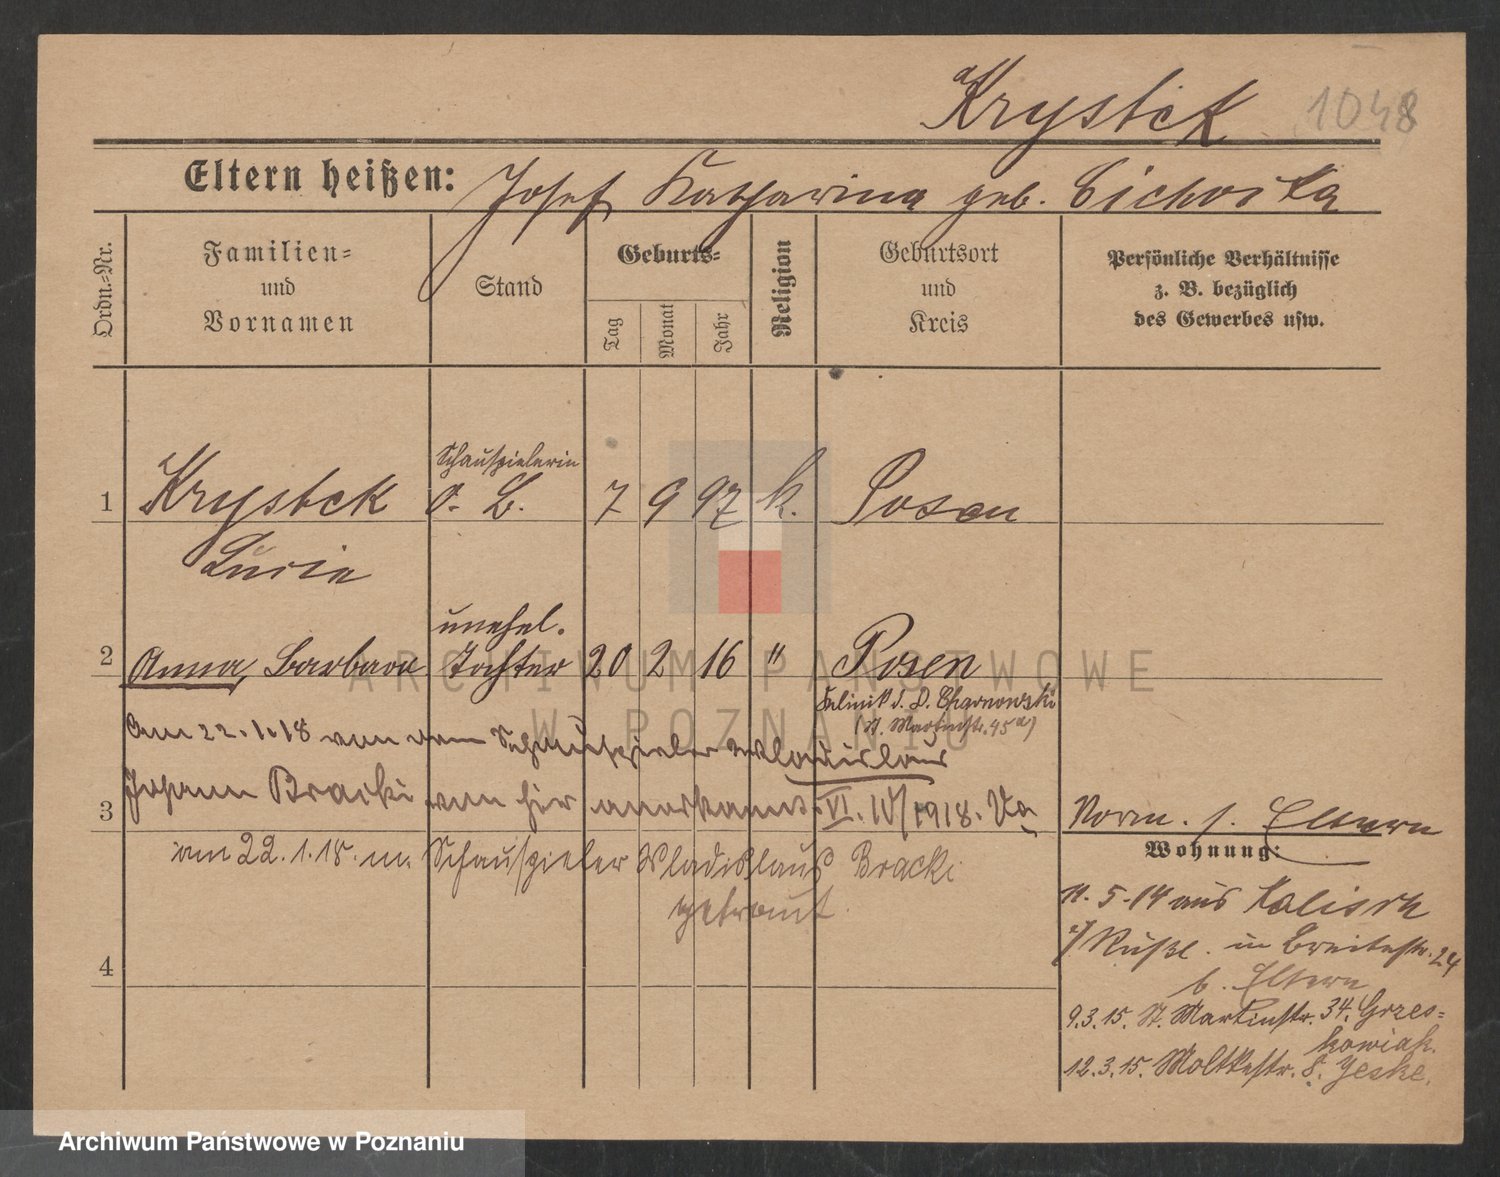 Krystek 1048
Eltern heißen: Josef Katharina geb. Cichocka
Ordn.-Nr.
Familien-
und
Vornamen
Stand
Geburts-
Tag
Monat
Jahr
Religion
Geburtsort
und
Kreis
Persönliche Verhältnisse
z. B. bezüglich
des Gewerbes usw.
Schauspielerin
1 Krystek o. B. 7 9 97 k. Posen
Lucie
unehel.
2 Anna, Barbara Tochter 20 2 16 " Posen
Klinik d. D. Chzarnowski
(St. Martinstr. 45a)
Am 22.1.18 von dem Schauspieler Wladislaus
Johann Bracki von hier anerkannt. VI. IV/1918. Va
3
Norm. s. Eltern
Wohnung:
am 22.1.18. m. Schauspieler Wladislaus Bracki
getraut.
11.5.14 aus Kalisch
i/Rußl. in Breitestr. 24
b. Eltern
4
9.3.15. St. Martinstr. 34. Grzes-
kowiak.
12.3.15. Moltkestr. 8. Jeske.
ARCHIWUM PAŃSTWOWE
W POZNANIU
Archiwum Państwowe w Poznaniu